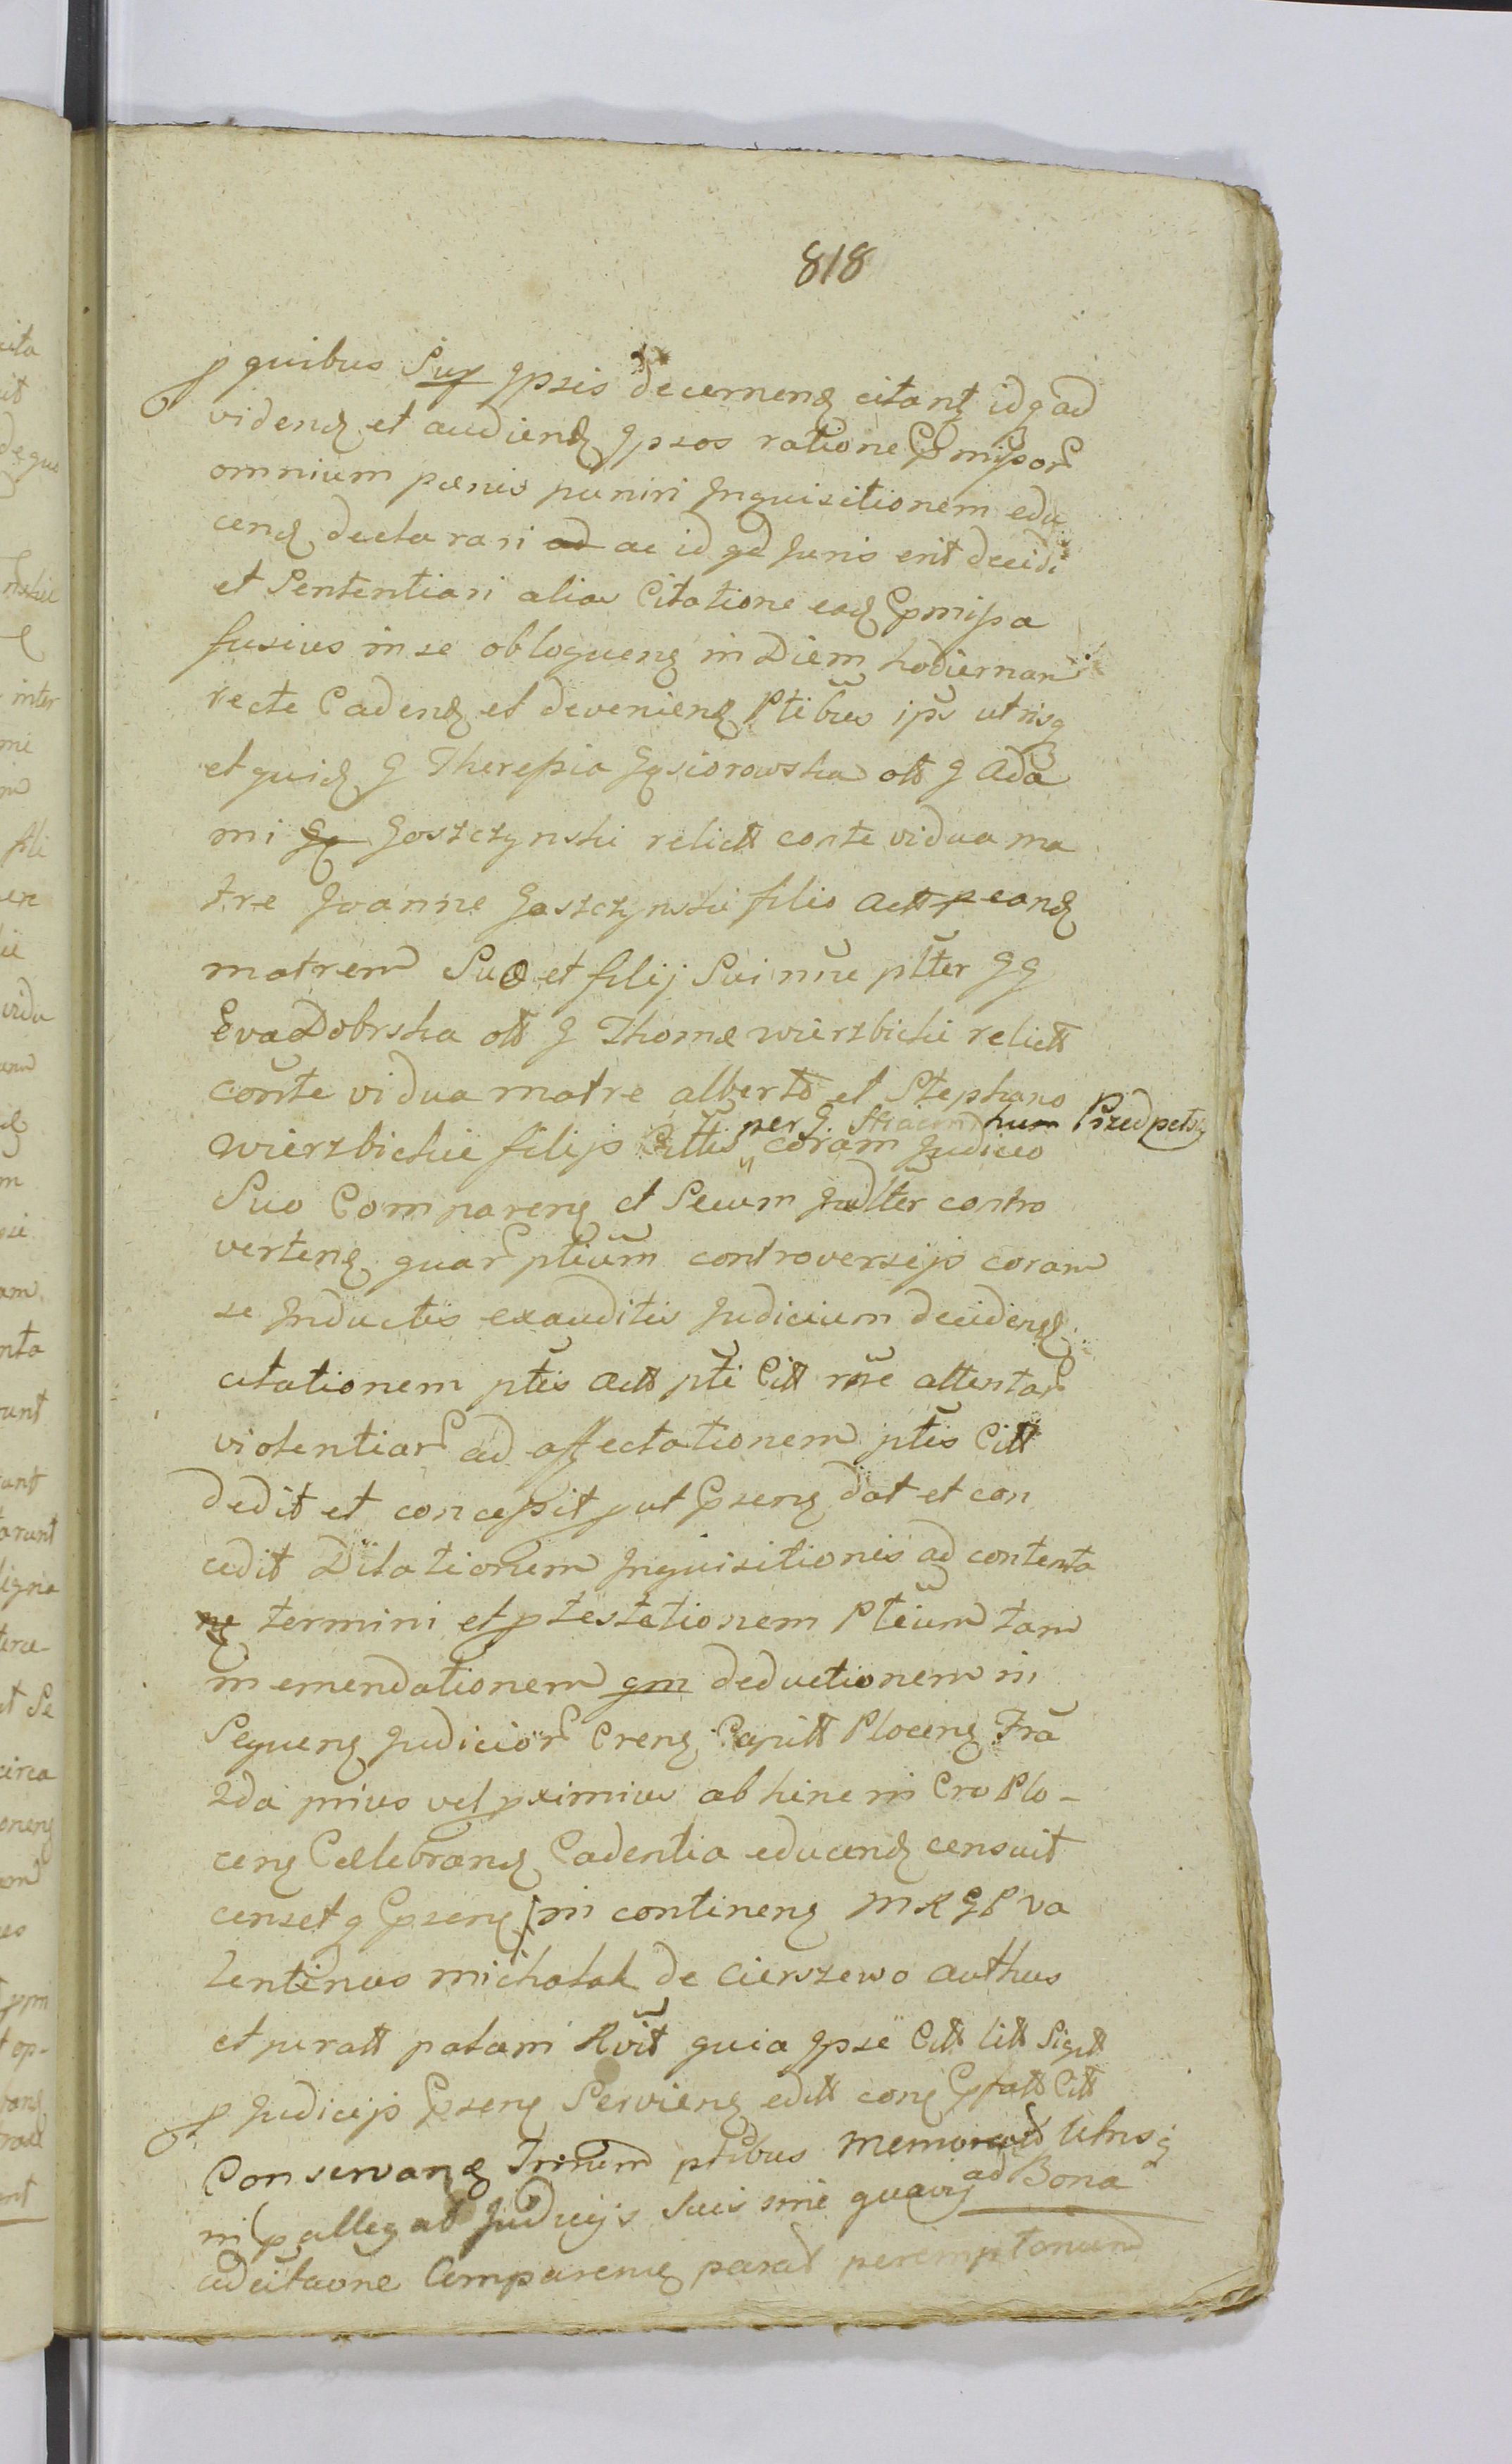 818
p quibus Sup ipsis decernenꝫ citanꝫ idꝫ ad
videnꝫ et audienꝫ ipsos ratione Præmissorꝫ
omnium pœnis puniri Inquisitionem edu
cenꝫ declarari ad ac id qd Juris erit decidi
et Sententiari alia Citatione eadꝫ Præmissa
fusius in se obloquenꝫ in Diem hodiernam
recte Cadenꝫ et devenienꝫ Ptibus ipis utrisqꝫ
et quidꝫ G Theressia Gąsiorowska olt G Ada
mi Gą Goszczynski relictt conte vidua ma
tre Joanne Goszczynski filio actt peanꝫ
matrem Suæ et filij Sui nne pltter GG
Eva Dobrska olt G Thomæ wierzbicki relictt
conte vidua matre alberto et Stephano
per G hum Przedpełsꝫ
wierzbickie filijs Cittis coram Judicio
Suo Comparenꝫ et Secum Judltter contro
vertenꝫ quarꝫ ptium controversijs coram
se Inductis exauditis Judicium decidenꝫ
citationem ptis actt pti Citt rne attentarꝫ
violentiarꝫ ad affectationem ptis Citt
dedit et concessit put Præsenꝫ dat et con
cedit Dilationem Inquisitionis ad contenta
termini et ptestationem Ptium tam
in emendationem qm deductionem in
Sequenꝫ Judiciorꝫ Crenꝫ Capitt Plocenꝫ Fra
2da prius vel pximius abhinc in Cro Plo-
cenꝫ Cælebranꝫ Cadentia educenꝫ censuit
censetqꝫ Præsenꝫ in continenꝫ MRGP va
lentinus michalak de Cierszewo authus
et juratt palam Rvit quia ipse Citt litt Sigtt
p Judicijs Præsenꝫ Servienꝫ editt conꝫ Præfatt Citt
Conservanꝫ Trmum ptibus Memoratt Utrisqꝫ
in præallegat Judicijs Suis sine quavis ad Bona
adcitaone Comparenꝫ parat peremptorium